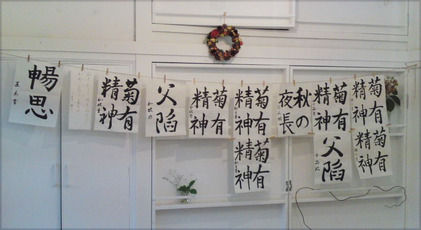 暢思
菊有
精神
父陷
菊有
精神
菊有
精神
菊有
精神
秋の
夜長
菊有
精神
父陷
菊有
精神
菊有
精神